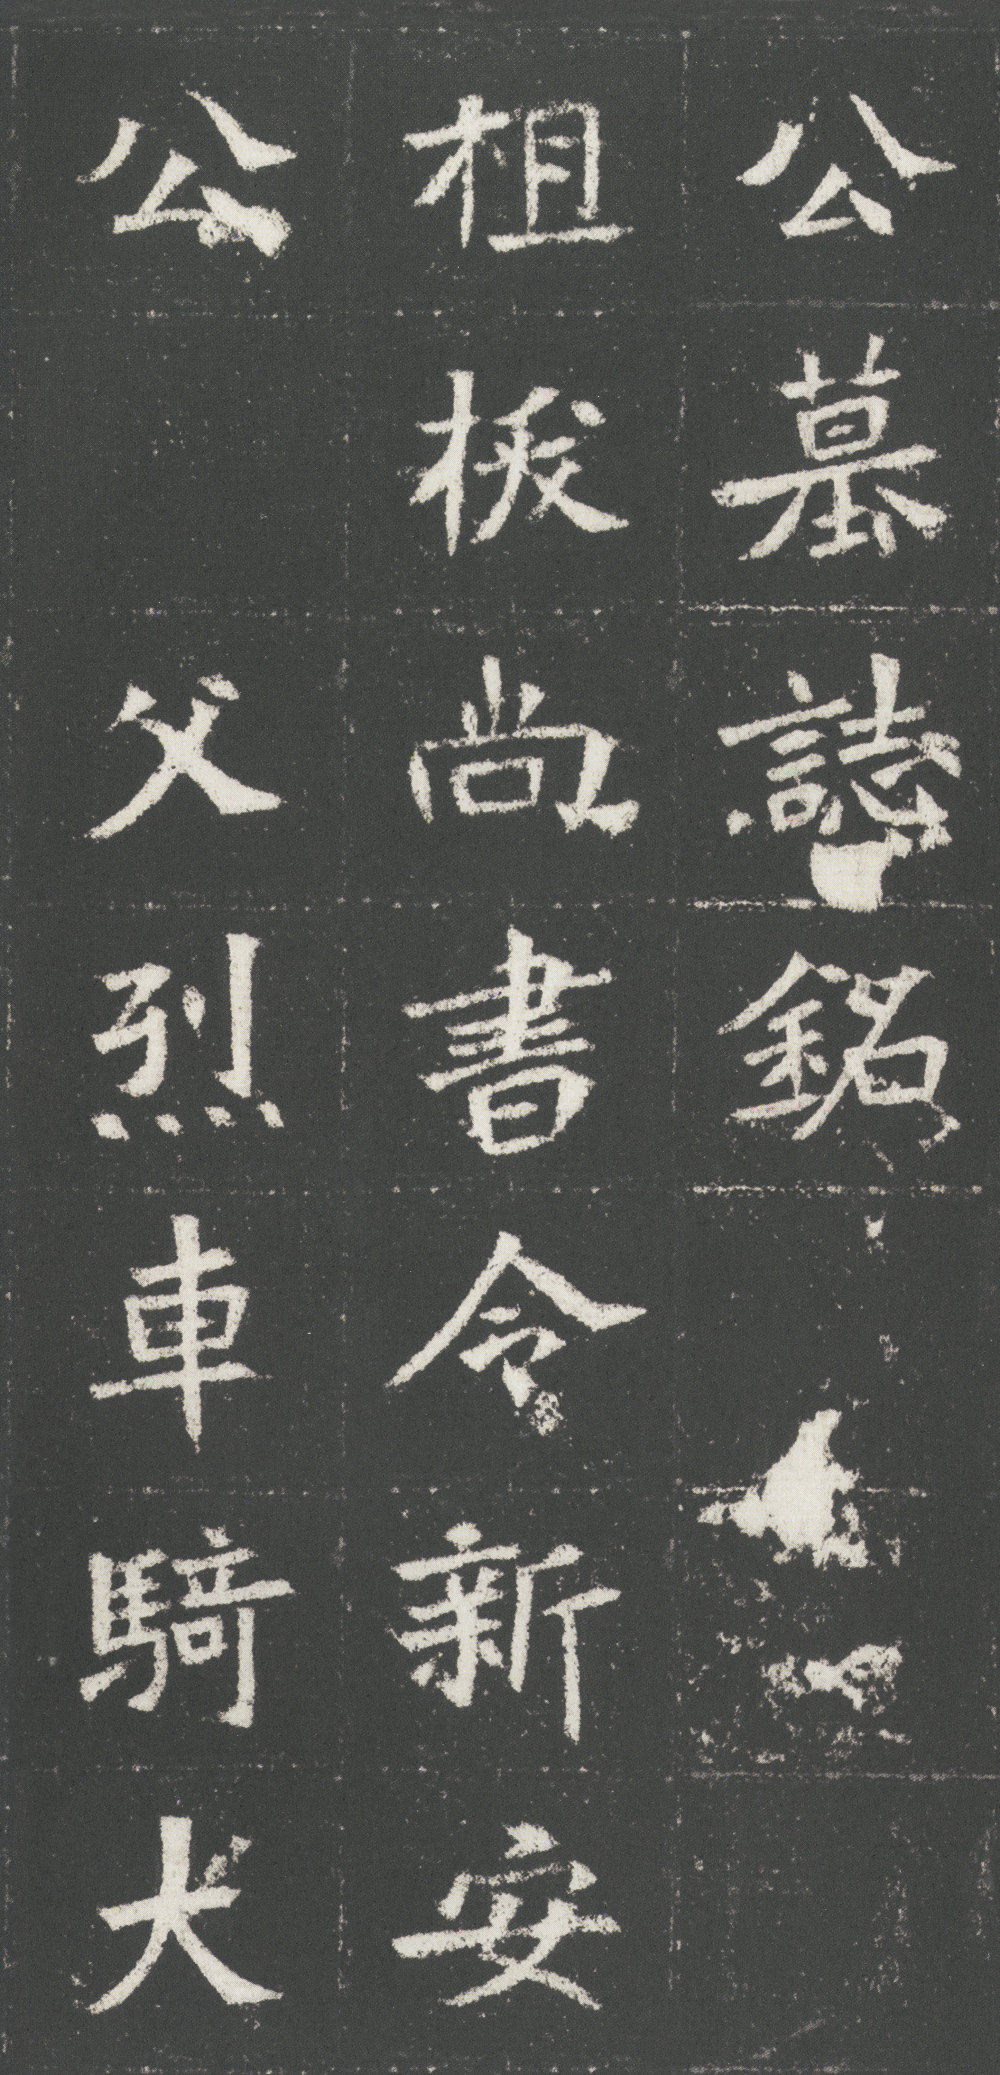 公墓誌銘
祖柭尚書令新安
公 父烈車騎大